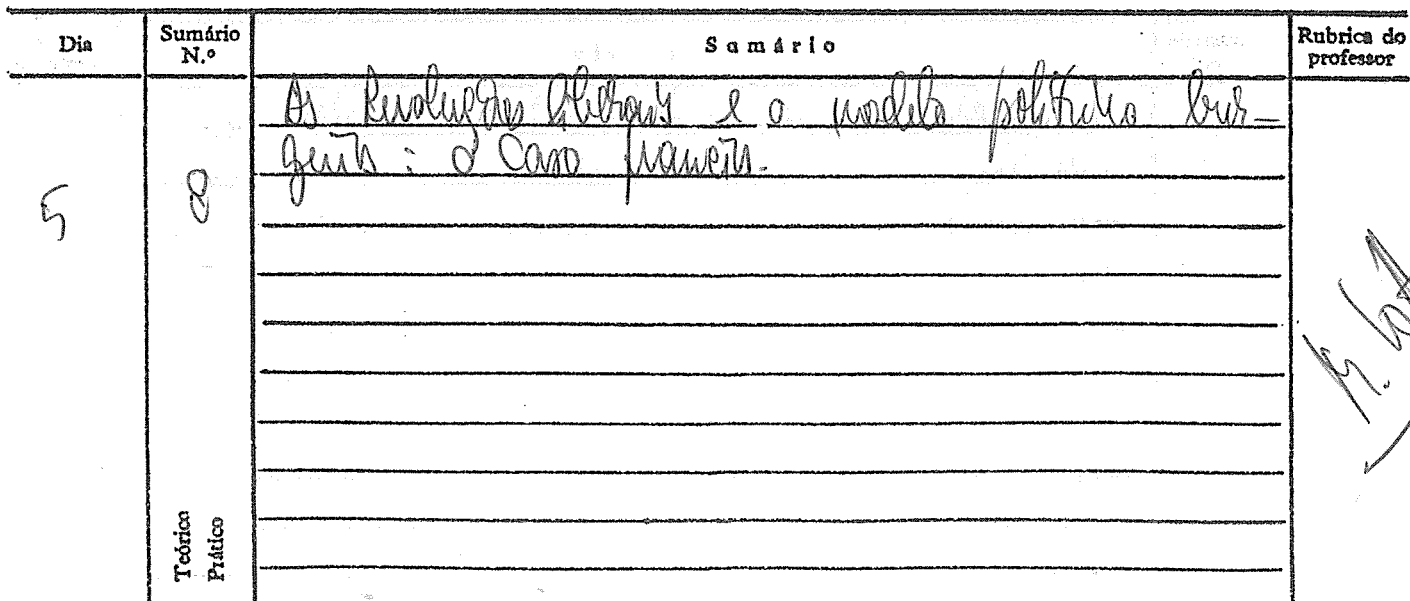 Dia
Sumário N.º
Sumário
Rubrica do professor
5
8
As Revoluções liberais e o modelo político bur-
guês: o caso francês.
Teórico
Prático